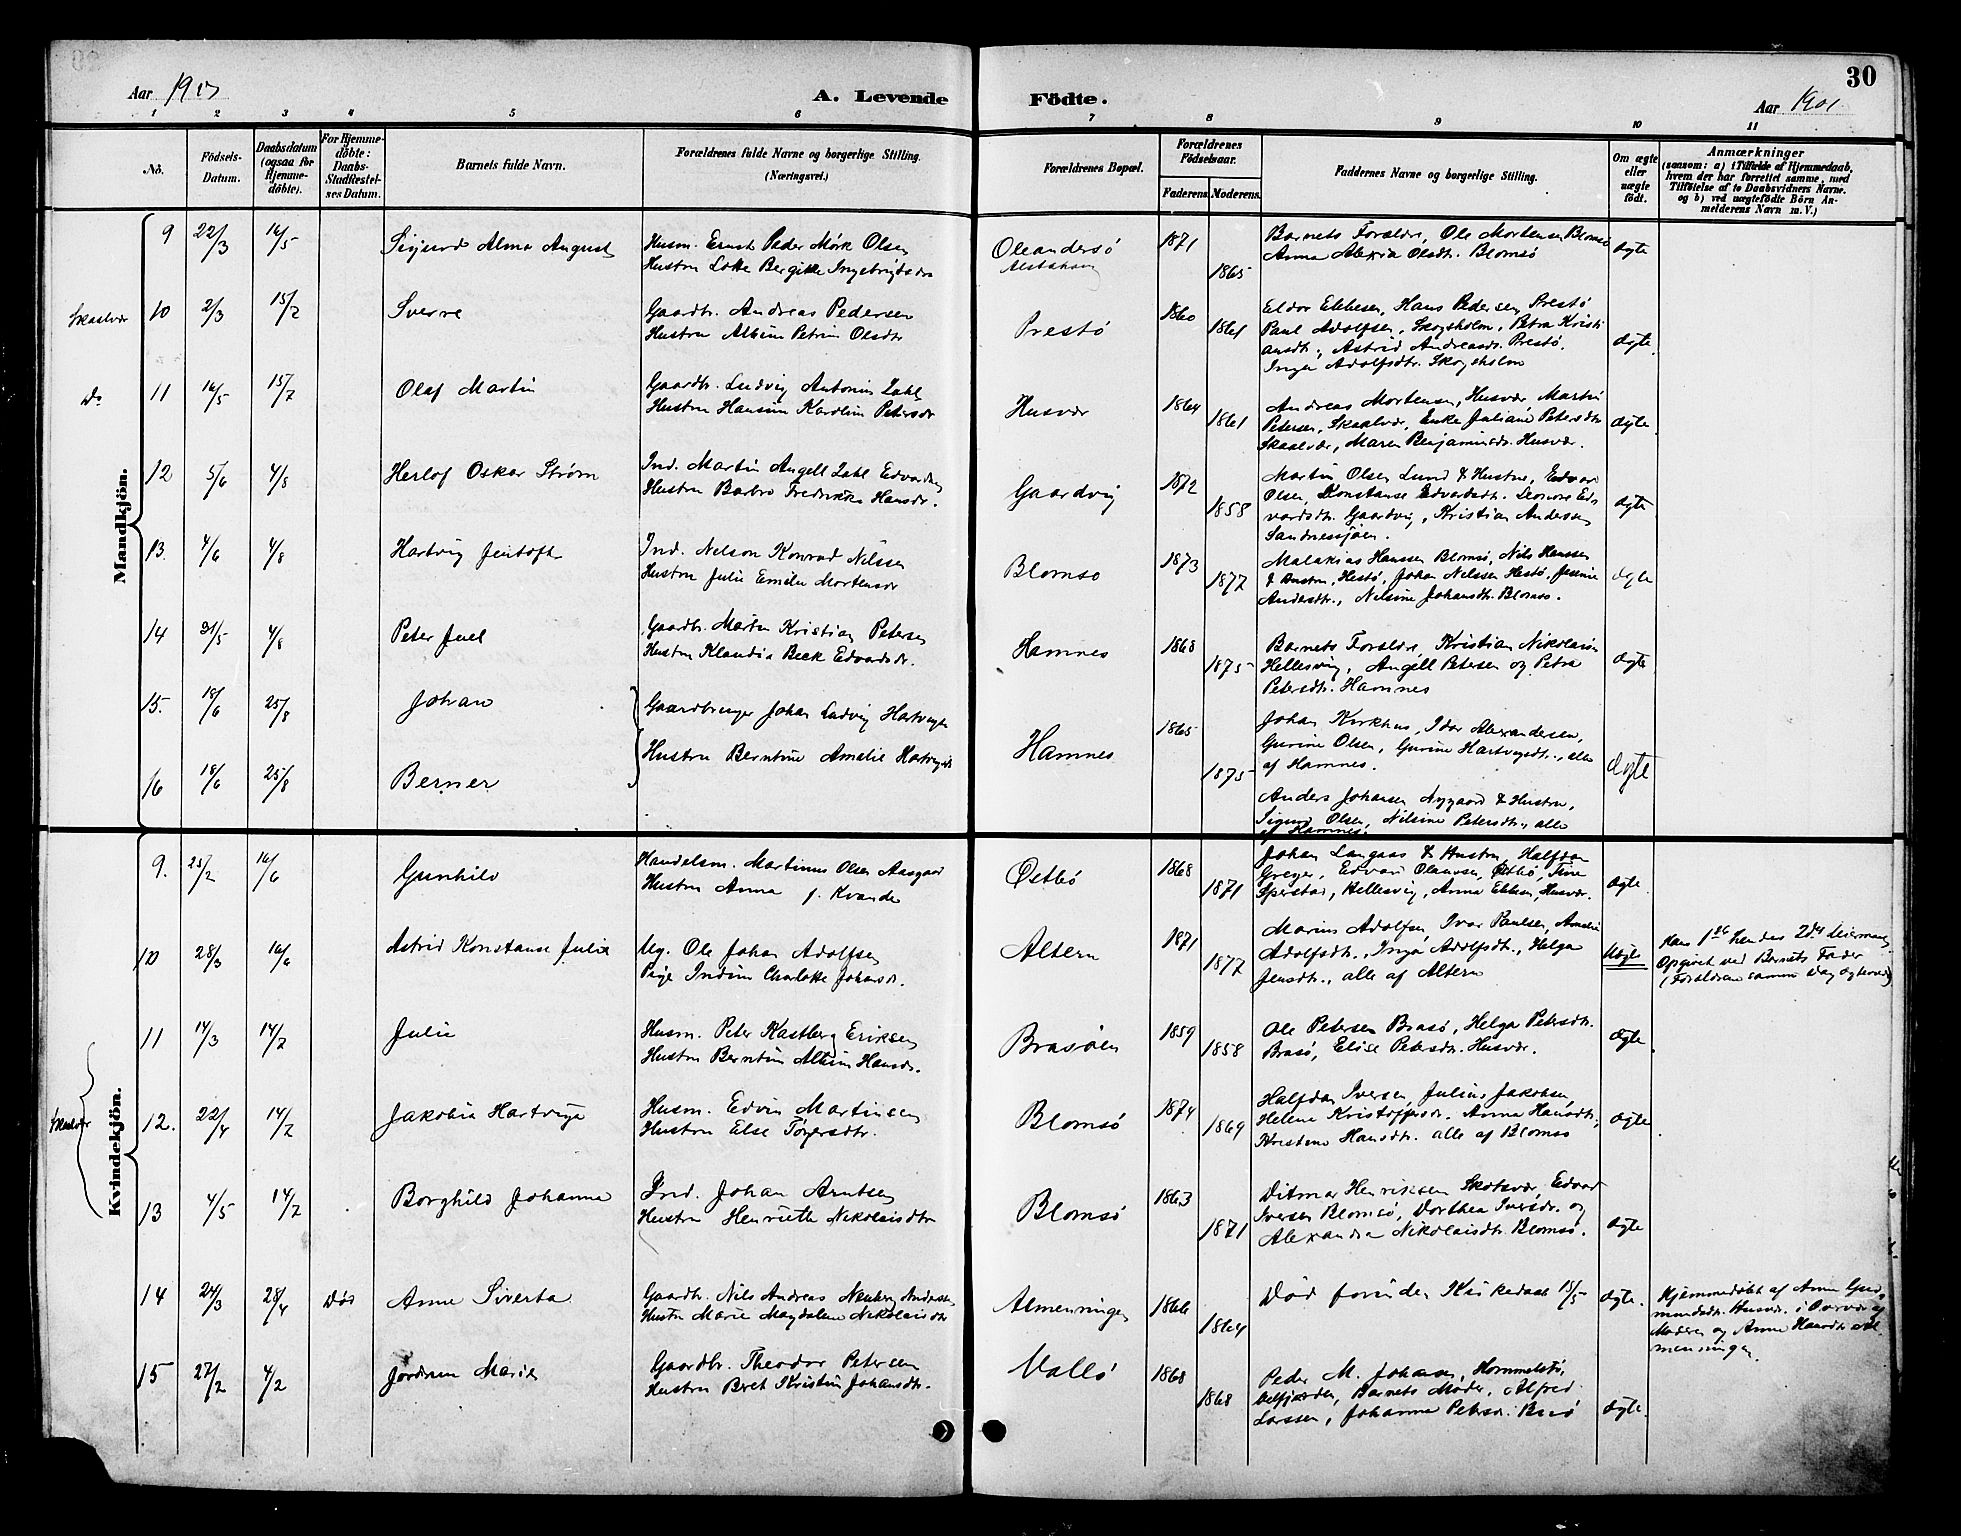 30
Aar 1901
A. Levende Födte.
Aar 1901
1 2 3 4 5 6 7 8 9 10 11
No.
Födsels-Datum.
Daabsdatum (ogsaa for Hjemme-döbte).
For Hjemme-döbte: Daabs-Stadfæstel-ses Datum.
Barnets fulde Navn.
Forældrenes fulde Navne og borgerlige Stilling.
(Næringsvei.)
Forældrenes Bopæl.
Forældrenes Födselsaar.
Faderens. Moderens.
Faddernes Navne og borgerlige Stilling.
Om ægte eller uægte födt.
Anmærkninger
(saasom: a) i Tilfælde af Hjemmedaab,
hvem der har forrettet samme, med
Tilföielse af to Daabsvidners Navne.
og b) ved uægtefödte Börn An-
melderens Navn m. V.)
Mandkjön.
9 22/3 16/5 Sigurd Alma August
Husm. Ernst Peder Mørk Olsen
Hustru Lotte Bergitte
Oleandersø
Alstahaug
1871 1865
Barnets Forældre, Ole Mortensen Blomsø
Anna Alexia Olsdtr. Blomsø
ægte
Skaalvær 10 2/3 15/7 Sverre
Gaardbr. Andreas Pedersen
Hustru Albine Petrine Olsdtr
Prestø
1860 1861
Eldor Ebbesen, Hans Pedersen, Prestø
Paul Adolfsen, Skogsholm, Petra Kristi
ansdtr., Astrid Andreasdr. Prestø.
Inga Adolfsdtr. Skogsholm
ægte.
Do 11 16/5 15/7 Olaf Martin
Gaardbr. Ludvig Antonius Zahl
Hustru Hansine Karoline Petersdr
Husvær
1864 1861
Andreas Mortensen, Husvær Martin
Petersen, Skaalvær, Enke Juliane Petersdtr
Skaalvær, Maren Benjaminsdr. Husvær.
ægte.
12 5/6 4/8 Herlof Oskar Strøm
Ind. Martin Angell Zahl Edvardsen
Hustru Barbro Fredrikka Hansdr.
Gaardvig
1872 1858
Martin Olsen Lund & Hustru, Edvard
Olsen, Konstanse Edvardsdtr. Leonore Ed-
vardsdtr. Gaardvig, Kristian Andersen
Sandnessjøen.
ægte
13. 4/6 4/8 Hartvig Jentoft
Ind. Nelson Konrad Nilssen
Hustru Julie Emilie Mortensdr
Blomsø
1873 1877
Malakias Hanssen Blomsø, Nils Hanssen
& Hustru, Hestø, Johan Nelssen Hestø,
Andersdtr., Nilsine Johansdtr. Blomsø.
ægte
14 31/5 4/8 Peter Juel
Gaardbr. Martin Kristian Petersen
Hustru Klaudia Beck Edvardsdr.
Hamnes
1868 1875
Barnets Forældre, Kristian Nikolaisen
Hellesvig, Angell Petersen og Petra
Petersdtr. Hamnes
ægte
15. 18/6 25/8 Johan
Gaardbruger Johan Ludvig Hartvigsen
Hustru Berntine Amalie Hartvigsdr
Hamnes
1865 1875
Johan Kirkhus, Idar Alexandersen,
Gurine Olsen, Gurine Hartvigsdtr., alle
af Hamnes.
ægte
16 18/6 25/8 Berner
Anders Johansen Nygaard & Hustru,
Sigurd Olsen, Nilsine Petersdtr., alle
af Hamnes.
Kvindekjön.
9. 25/2 16/6 Gunhild
Handelsm. Martinus Olsen Aasgaard
Hustru Anna f. Kvande
Østbø
1868 1871
Johan Langaas & Hustru, Halfdan
Greger, Edvard Olaussen, Østbø, Tine
Sperstad, Hellesvig, Anna Ebbesen, Husvær.
ægte.
10 28/3 16/6 Astrid Konstanse Julie
Ug. Ole Johan Adolfsen
Pige Indine Charlotte Johansdr.
Altern
1871 1877
Marius Adolfsen, Ivar Paulsen, Amalie
Adolfsdtr., Inga Adolfsdtr., Helga
Jensdtr., alle af Altern
Uægte
Hans 1ste hendes 2det Leiermaal
Opgivet ved Barnets Fader
(Forældrene samme Dag ægteviet)
11 14/3 14/7 Julie
Husm. Peter Kastberg Eriksen
Hustru Berntine Altine Hansdr.
Brasøen
1859 1858
Ole Petersen Brasø, Helga Petersdtr.
Brasø, Elise Petersdtr. Husvær.
ægte
Skaalvær 12. 22/4 14/7 Jakobia Hartviga
Husm. Edvin Martinsen
Hustru Else Tøgersdtr.
Blomsø
1874 1869
Halfdan Iversen, Julius Jakobsen,
Helene Kristoffersdr. Anna Hansdtr.,
Kristine Hansdtr. alle af Blomsø
ægte
13 4/5 14/7 Borghild Johanna
Ind. Johan Arntsen
Hustru Henriette Nikolaisdtr
Blomsø
1863 1871
Ditmar Henriksen Skotsvær, Edvard
Iversen Blomsø, Dorthea Iversdr. og
Alexandra Nikolaisdtr. Blomsø.
ægte
14 24/3 28/4 Død Anne Siverta
Gaardbr. Nils Andreas Andersen
Hustru Marie Magdalene Nikolaisdtr
Almenningen
1866 1864
Død forinden Kirkedaab 15/5
ægte.
Hjemmedøbt af Anne Gud-
mundsdtr. Husvær. i Overvær af
Moderen og Anne Hansdtr. Al-
menningen
15 27/2 4/2 Jordrun Marie
Gaardbr. Theodor Petersen
Hustru Beret Kristine Johansdtr.
Vallø
1868 1868
Peder M. Johansen, Hommelstø,
Velfjorden, Barnets Moder, Alfred
Larssen, Johanna Petersdr.
ægte.